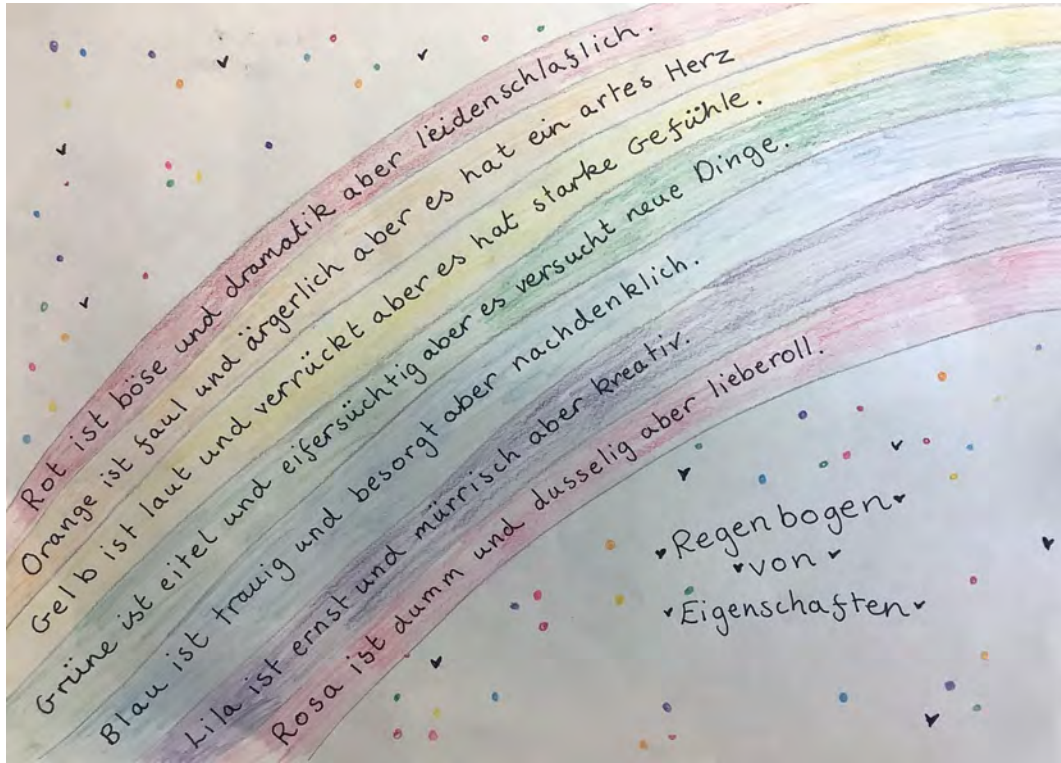 Rot ist böse und dramatik aber leidenschlaflich.
Orange ist faul und ärgerlich aber es hat ein artes Herz
Gelb ist laut und verrückt aber es hat starke Gefühle.
Grüne ist eitel und eifersüchtig aber es versucht neue Dinge.
Blau ist trauig und besorgt aber nachdenklich.
Lila ist ernst und mürrisch aber kreativ.
Rosa ist dumm und dusselig aber lieberoll.
Regenbogen
von
Eigenschaften